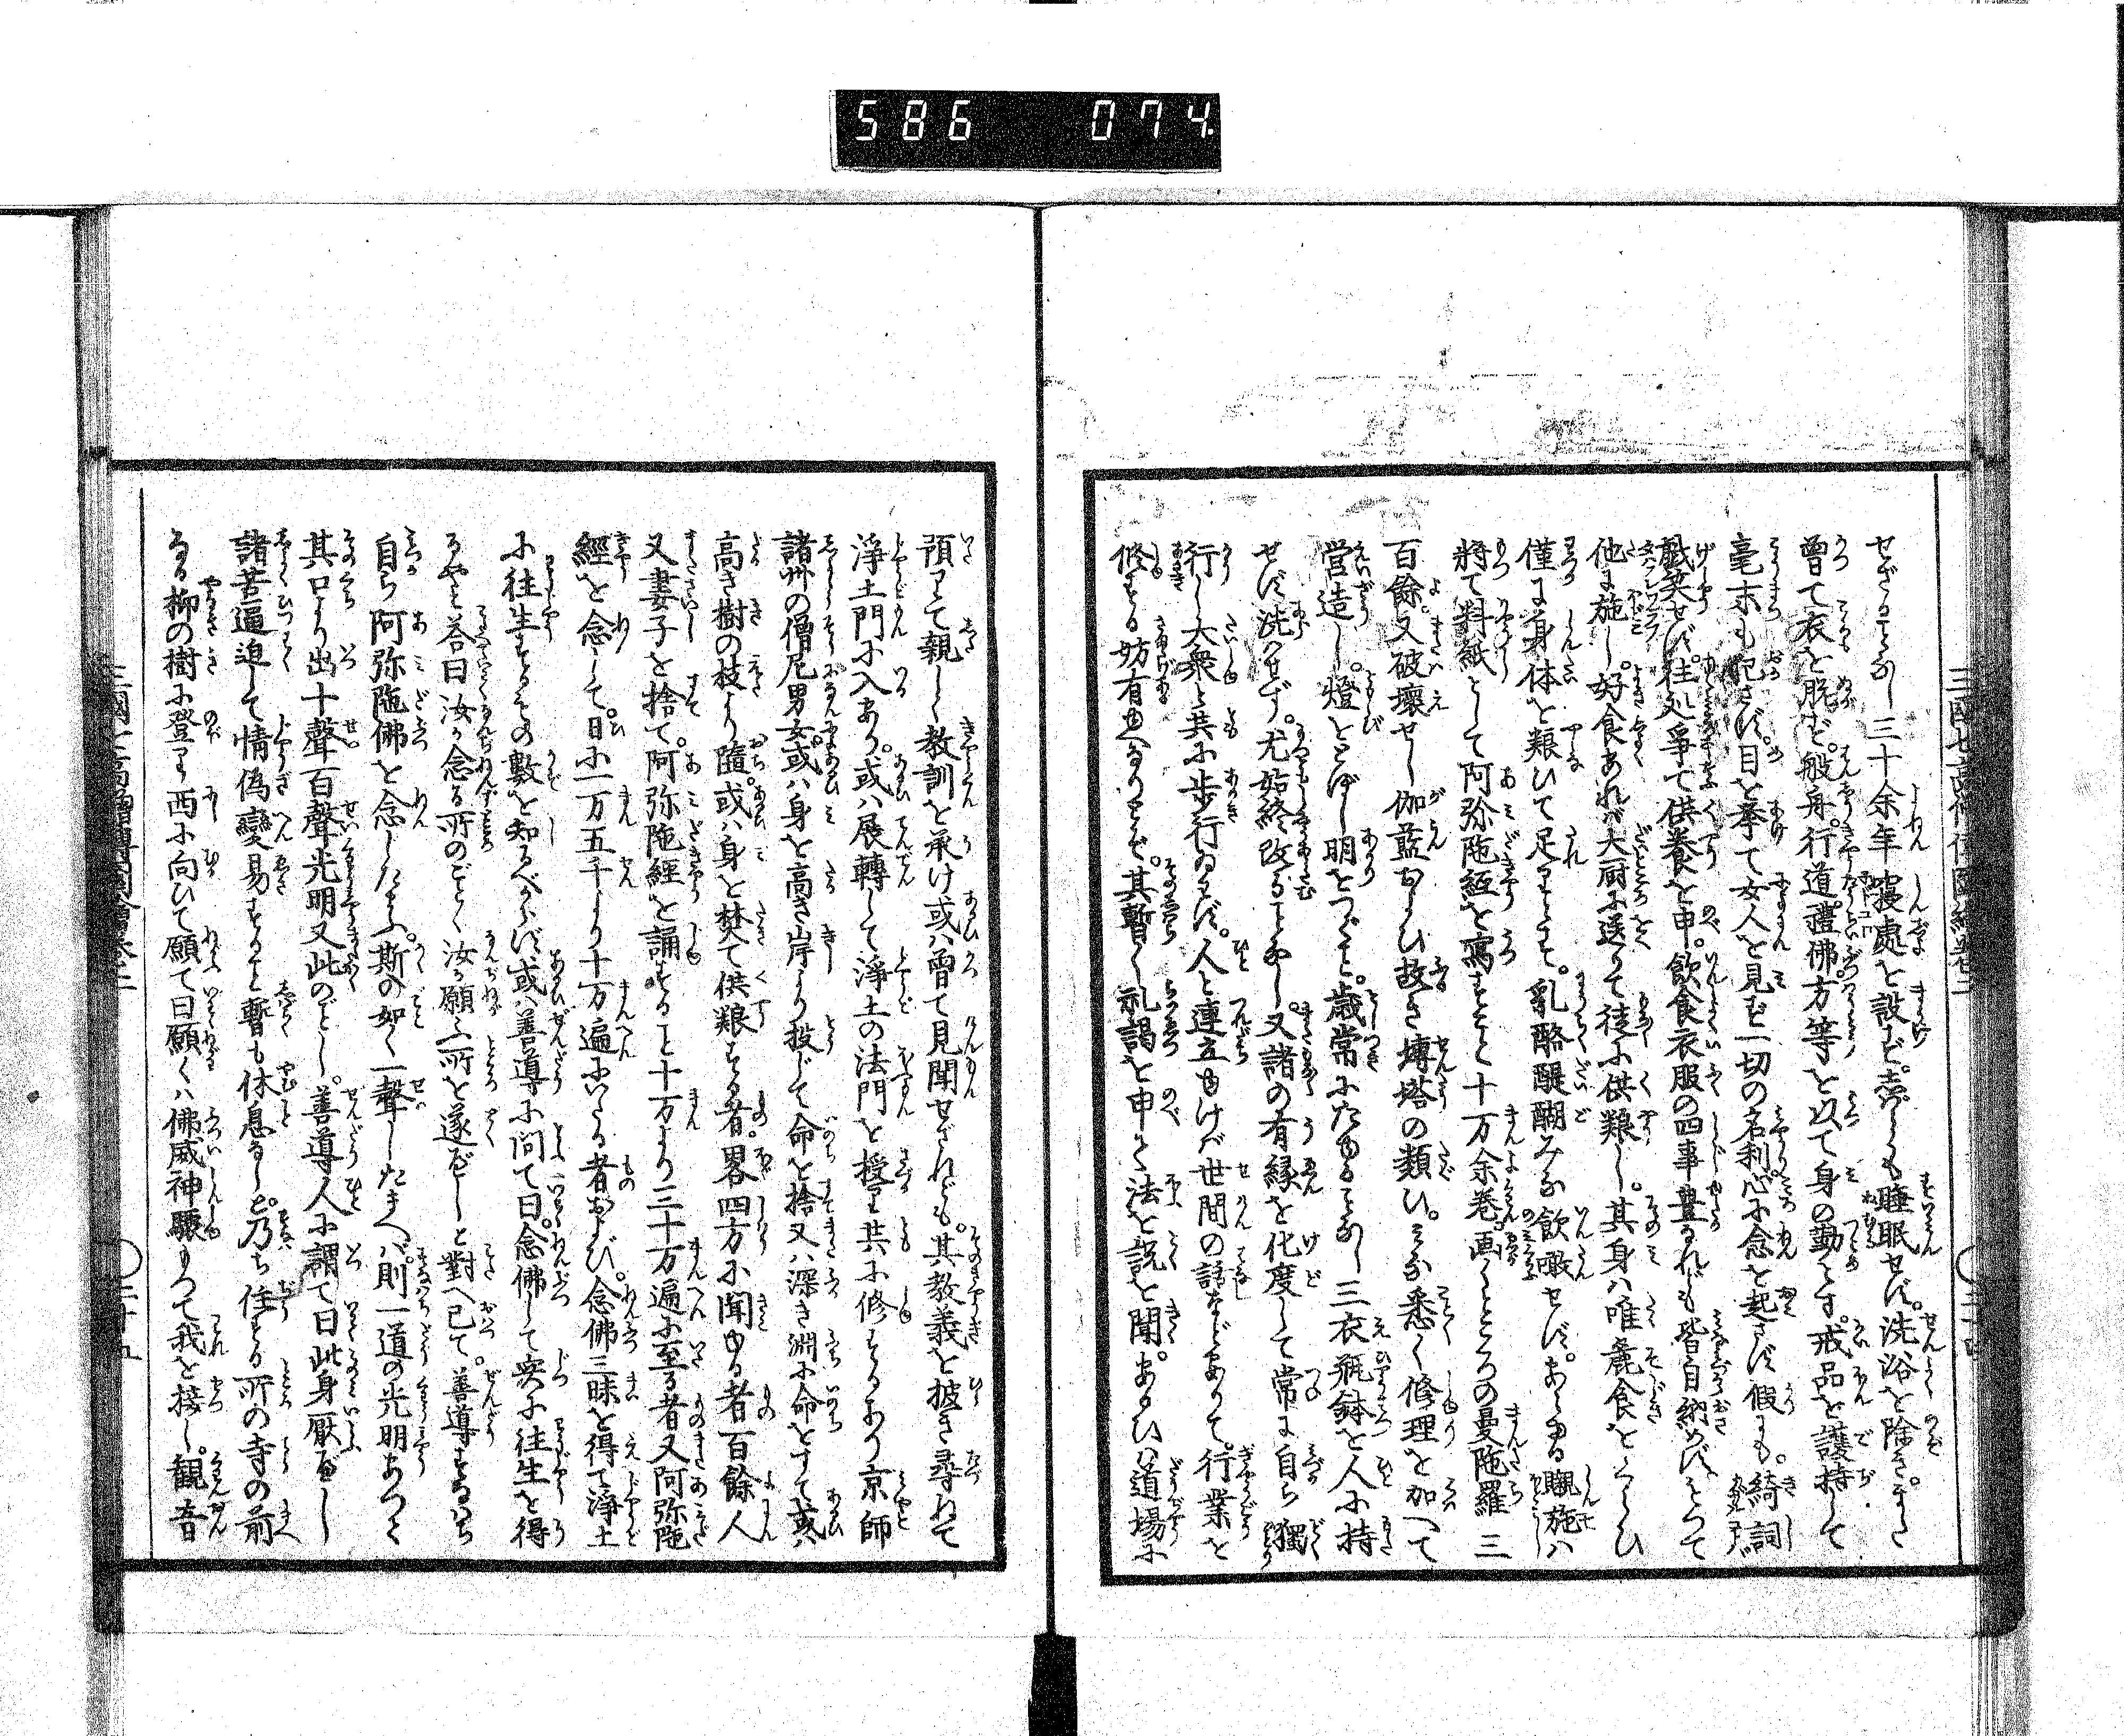 586 074
三國七高僧傳圖繪卷二
せざることなし三十余年寝處を設ず。志ばしも睡眠せず。洗浴を除き。まさ
曾て衣を脱ず。般舟。行道。禮佛。方等を以て身の勤とす。戒品を護持して
毫末も犯さず。目を挙て女人を見ず一切の名利心に念を起さず假にも。綺詞
戯笑せず。往処爭て供養を申。飲食衣服の四事豊なれども皆自納めず。もつて
他に施し。好食あれバ大厨に送りて徒に供粮し。其身ハ唯麁食をくらひ
僅に身体を粮ひて足りとす。乳酪醍醐みな飲噉せず。あらゆる䞋施ハ
將て料紙として阿弥陀経を寫すこと十万余卷。画くところの曼陀羅三
百餘。又破壞せし伽藍および故き塼塔の類ひ。みな悉く修理を加へて
営造し。燈をともし明をつぐこと。歳常にたゆることなし三衣瓶鉢を人に持
せず洗ハせず。尤始終改ることなし。又諸の有縁を化度して常に自ら獨
行し大衆と共に歩行ゐず。人と連立ゆけバ世間の話などありて。行業を
修する妨有ゆへなりとぞ。其暫く礼謁を申て法を説を聞。あるひハ道場に
二十四
預りて親しく教訓を承け或ハ曾て見聞せざれども。其教義を披き尋ねて
淨土門に入あり。或ハ展轉して淨土の法門を授り共に修するあり京師
諸州の僧尼男女。或ハ身を高き岸より投じて命を捨又ハ深き淵に命をすて或ハ
高き樹の枝より隨。或ハ身を焚て供粮する者。畧四方に聞ゆる者百餘人
又妻子を捨て。阿弥陀經を誦すること十万より三十万遍に至る者又阿弥陀
經を念して。日に一万五千より十万遍にいたる者および。念佛三昧を得て淨土
に往生するその數を知るべからず或ハ善導に问て曰。念佛して実に往生を得
るやと答曰汝が念る所のごとく汝が願ふ所を遂べしと對へ已て。善導すなはち
自ら阿弥陀佛を念じたまふ。斯の如く一聲したまへバ。則一道の光明あつて
其口より出十聲百聲光明又此のごとし。善導人に謂て曰此身厭べし
諸苦逼迫して情偽變易すること暫も休息なしと。乃ち住する所の寺の前
なる柳の樹に登り西に向ひて願て曰願くハ佛威神驟もつて我を接し。観音
三國七高僧傳圖繪卷二
二十五